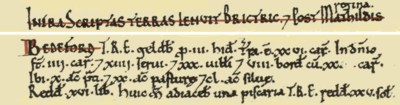 regina.
Infra scriptas terras tenuit Brictric 7 post Mathildis
Bedeford T.R.E. geldb p. iii. hid. Tra. e. xx vi. car. In dnio
st. iiii. car. 7 xiiii. serui. 7 xxx. uilli 7 viii. bord cu. xx. car.
Ibi. x. ac pti. 7 xx. ac pasturę 7 cl. ac siluę.
Redd. xvi. lib. Huic m adiacet una piscaria T.R.E. redd. xxv. sol.